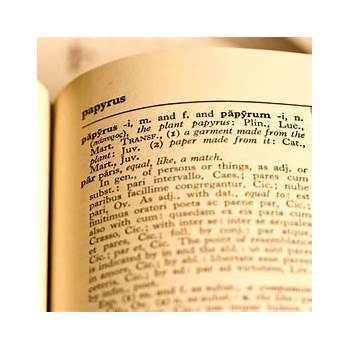 papyrus
păpȳrus -i, m. and f. and păpȳrum -i, n.
(πάπυρος), the plant papyrus: Plin., Luc.,
Mart. TRANSF., (1) a garment made from the
plant: Juv. (2) paper made from it: Cat.,
Mart., Juv.
pār păris, equal, like, a match.
In gen., of persons or things, as adj. or
subst.: pari intervallo, Caes.; pares cum
paribus facillime congregantur, Cic.; nube
pari, Ov. As adj., with dat., equal to: est
finitimus oratori poeta ac paene par, Cic.;
also with cum: quasdam ex paris cum
Crasso, Cic.; with inter se: inter se aequales
et pares, Cic.; foll. by conj.: par atque,
Cic. The point of resemblance
in abl. : ut sint pares
in amore, Cic.; par ad virtutem, Liv.
ceteris, Cic.
by infin., poet.